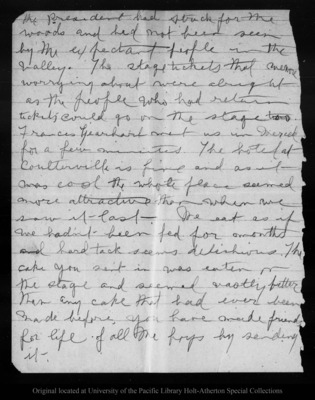 the President had struck for the
woods and had not been seen
by the expectant people in the
valley. The stage tickets that
worrying about were all right
as the people who had return
tickets could go on the stage too.
Francis met us in
for a few minutes. The hotel at
Coulterville is fine and as it
was cool the whole place seemed
more attractive than when we
saw it last. We eat as if
we hadn't been fed for months
and hard tack seems delichious. The
cake you sent in was eaten on
the stage and seemed vastly better
than any cake that had ever been
made before. you have made friends
for life of all the boys by sending
it.
Original located at University of the Pacific Library Holt-Atherton Special Collections